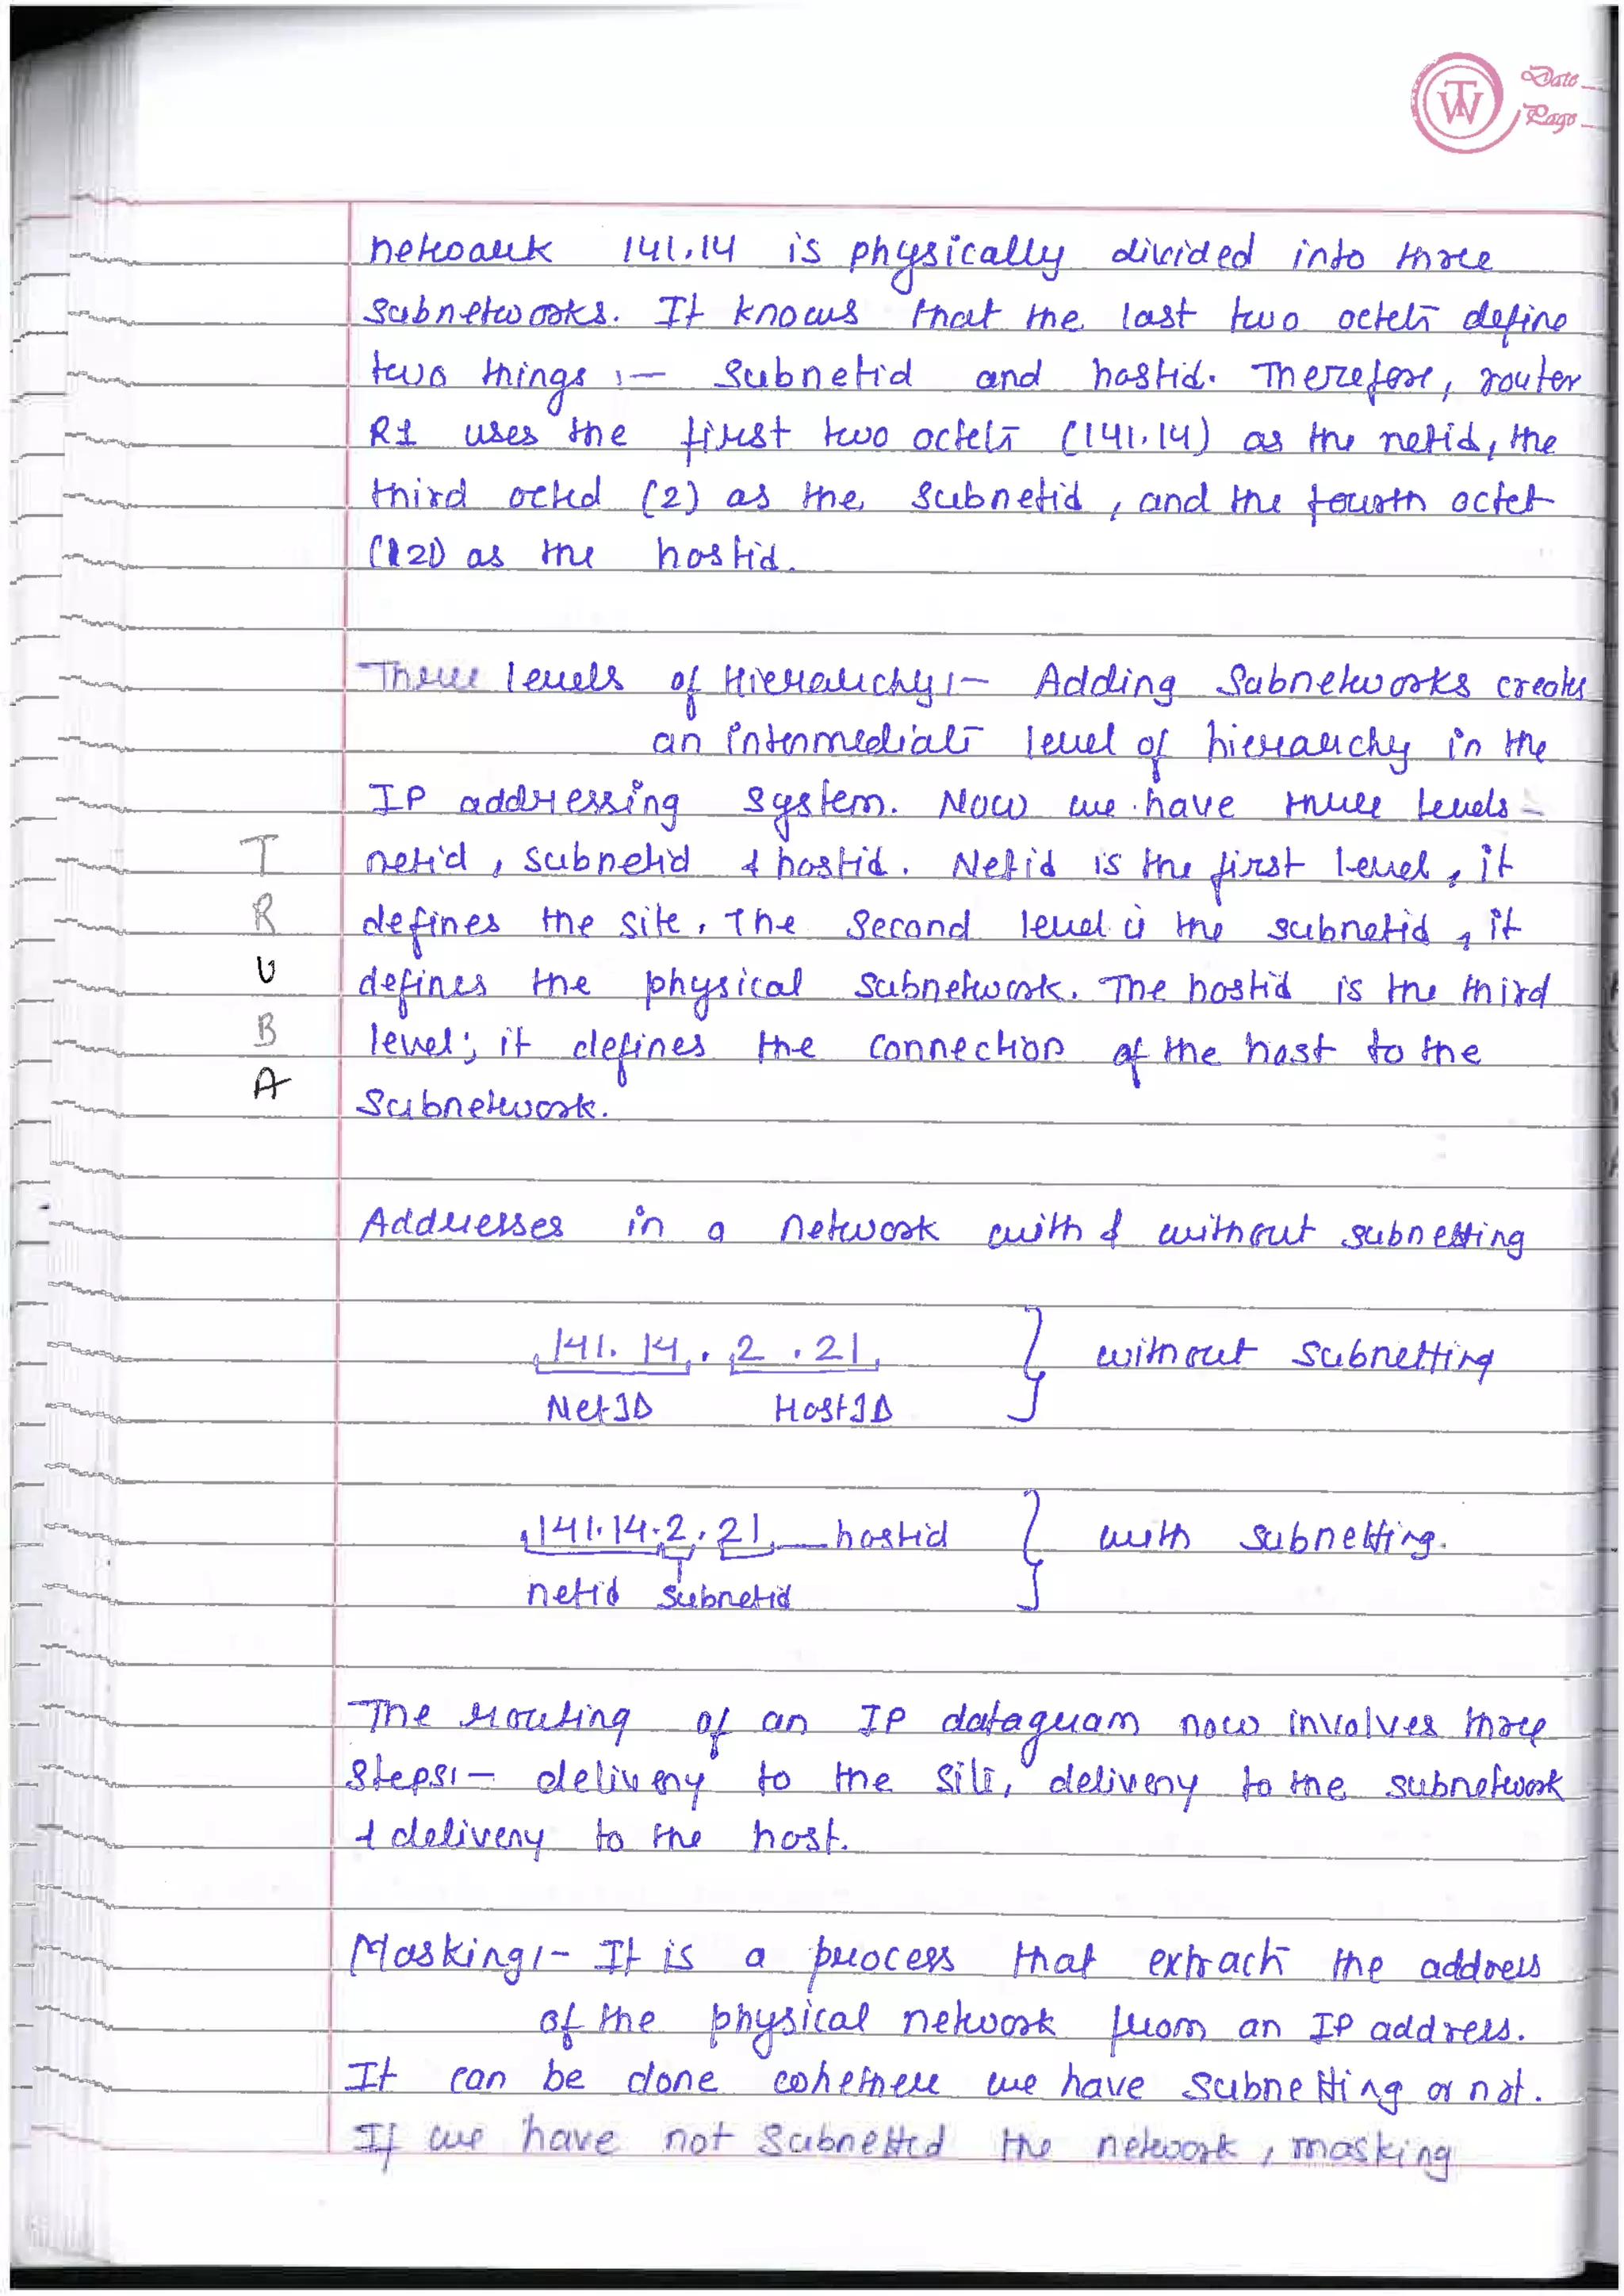 TW
Date
Page
network 141.14 is physically divided into three
subnetworks. It knows that the last two octets define
two things :- subnetid and hostid. Therefore, router
R1 uses the first two octets (141.14) as the netid, the
third octed (2) as the subnetid, and the fourth octet
(121) as the hostid.
Three levels of Hierarchy :- Adding Subnetworks creates
an intermediate level of hierarchy in the
IP addressing system. Now we have three levels -
netid, subnetid & hostid. Netid is the first level, it
defines the site. The second level is the subnetid, it
defines the physical subnetwork. The hostid is the third
level; it defines the connection of the host to the
Subnetwork.
T
R
U
B
A
Addresses in a network with & without subnetting
141.14 . 2 . 21 } without subnetting
NetID HostID
141.14.2.21 hostid } with subnetting.
netid subnetid
The routing of an IP datagram now involves three
steps :- delivery to the site, delivery to the subnetwork
& delivery to the host.
Masking :- It is a process that extracts the address
of the physical network from an IP address.
It can be done whethere we have subnetting or not.
If we have not subnetted the network, masking